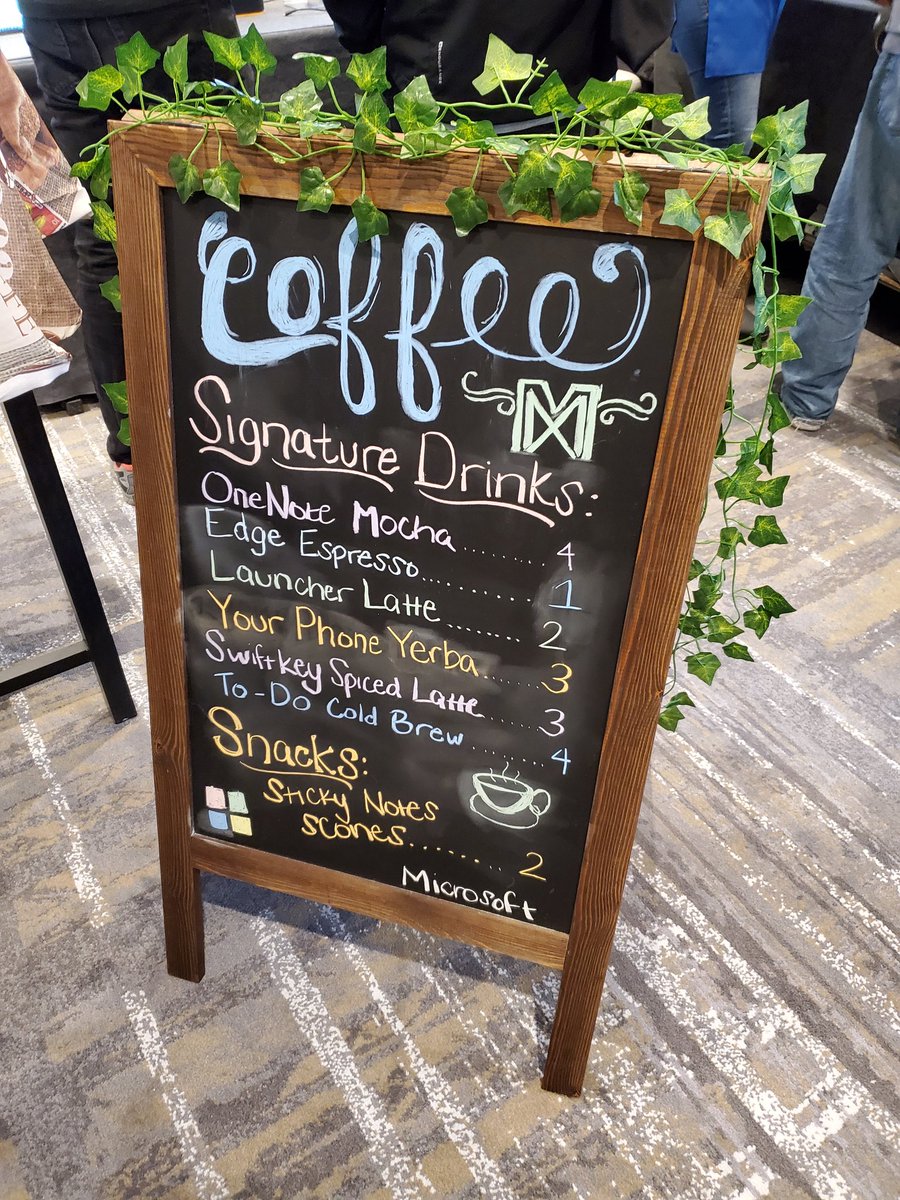 Coffee
M
Signature Drinks:
OneNote Mocha......... 4
Edge Espresso............ 1
Launcher Latte ......... 2
Your Phone Yerba...... 3
SwiftKey Spiced Latte...... 3
To-Do Cold Brew ...... 4
Snacks:
Sticky Notes
Scones........ 2
Microsoft